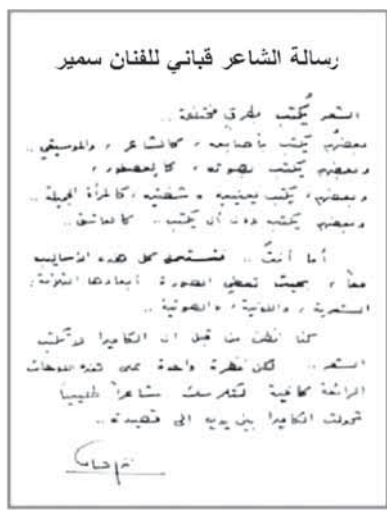 رسالة الشاعر قباني للفنان سمير
الشعر يُكتب بطرق مختلفة ..
بعضهم يكتب بأصابعه ، كالشاعر ، والموسيقي ..
وبعضهم يكتب بصوته ، كالعصفور ،
وبعضهم يكتب بعينيه وشفتيه ، كالمرأة الجميلة ..
وبعضهم يكتب دون أن يكتب .. كالعاشق ..
أما أنت .. فتستعمل كل هذه الأساليب
معاً ، بحيث تعطي الصورة أبعادها الثلاثة :
الشعرية ، واللونية ، والصوتية ..
كنا نظن من قبل ان الكاميرا لا تكتب
الشعر .. لكن نظرة واحدة على هذه اللوحات
الرائعة كافية لنعرف شاعراً
تحولت الكاميرا بين يديه الى قصيدة ..